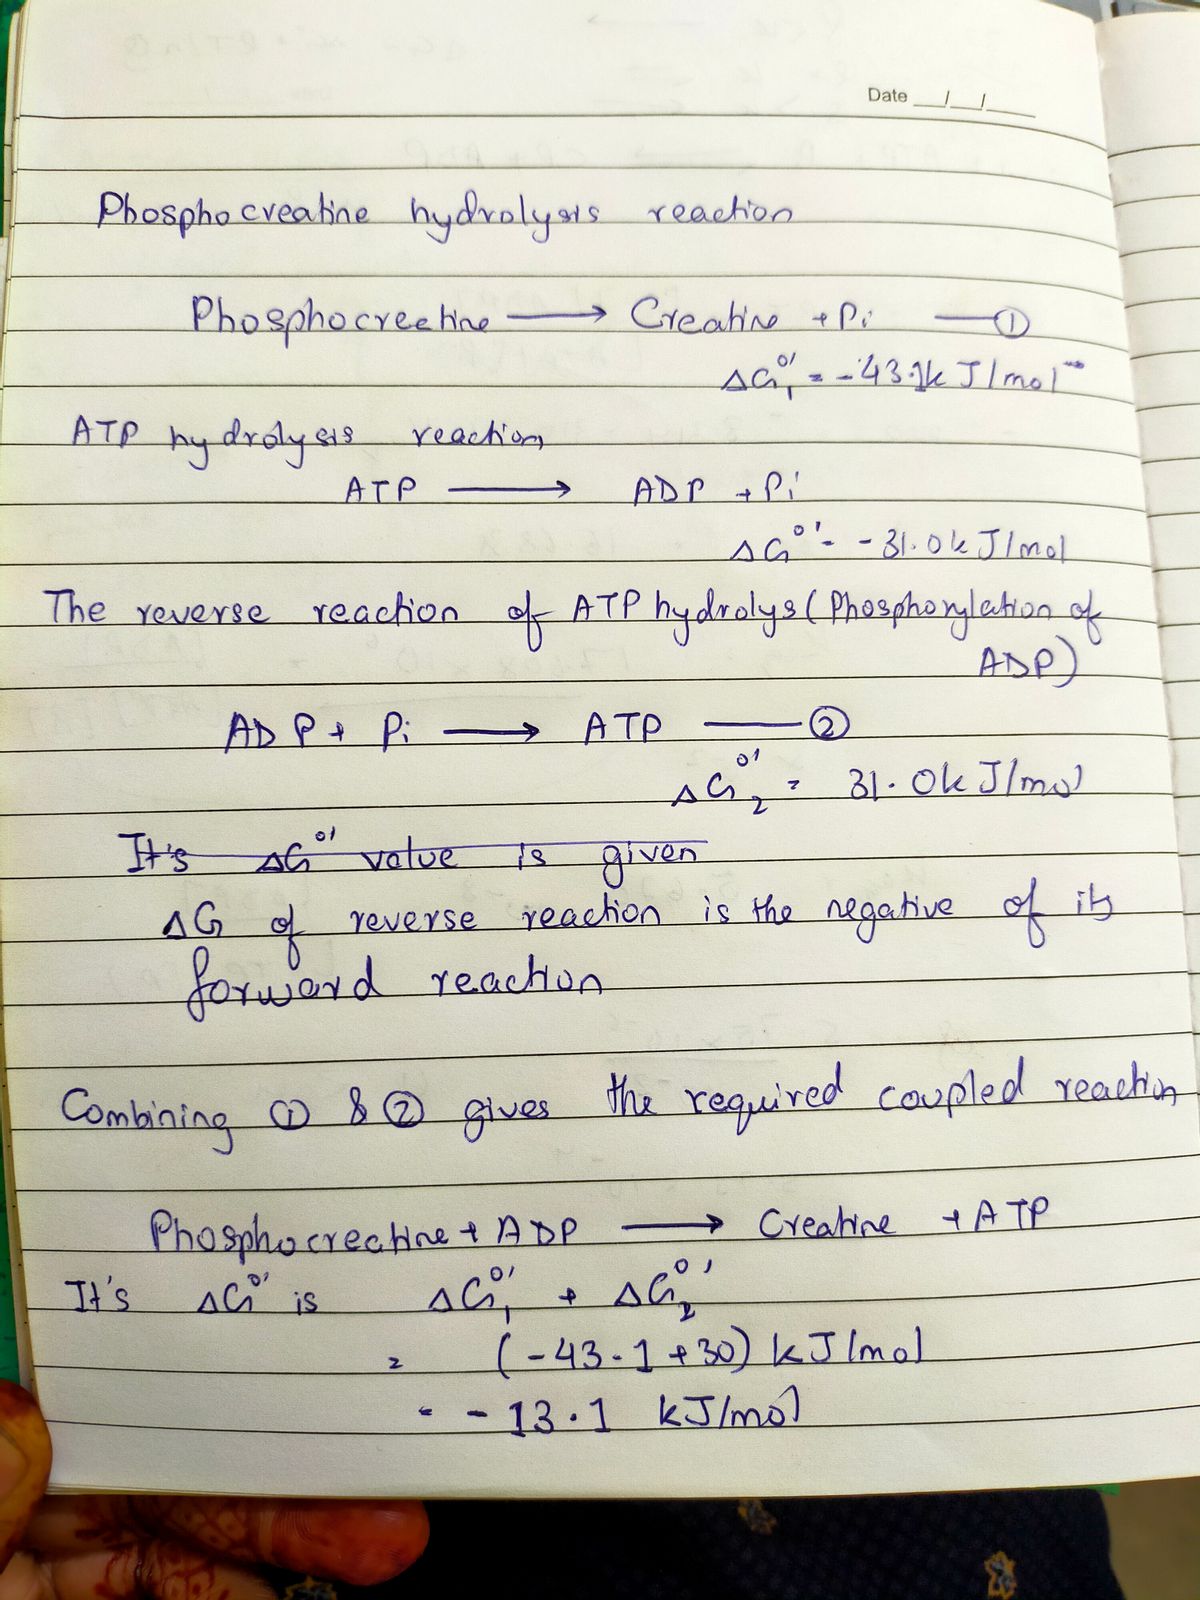 Date __/__/__
Phosphocreatine hydrolysis reaction
Phosphocreetine ⟶ Creatine + Pi —①
ΔG₁°' = -43.1k J/mol
ATP hydrolysis reaction
ATP ⟶ ADP + Pi
ΔG°' = -31.0k J/mol
The reverse reaction of ATP hydrolys (Phosphorylation of
ADP)
ADP + Pi ⟶ ATP —②
ΔG₂°' = 31.0k J/mol
It's ΔG°' value is given
ΔG of reverse reaction is the negative of its
forward reaction
Combining ① & ② gives the required coupled reaction
Phosphocreatine + ADP ⟶ Creatine + ATP
It's ΔG°' is ΔG₁°' + ΔG₂°'
= (-43.1+30) kJ/mol
= -13.1 kJ/mol